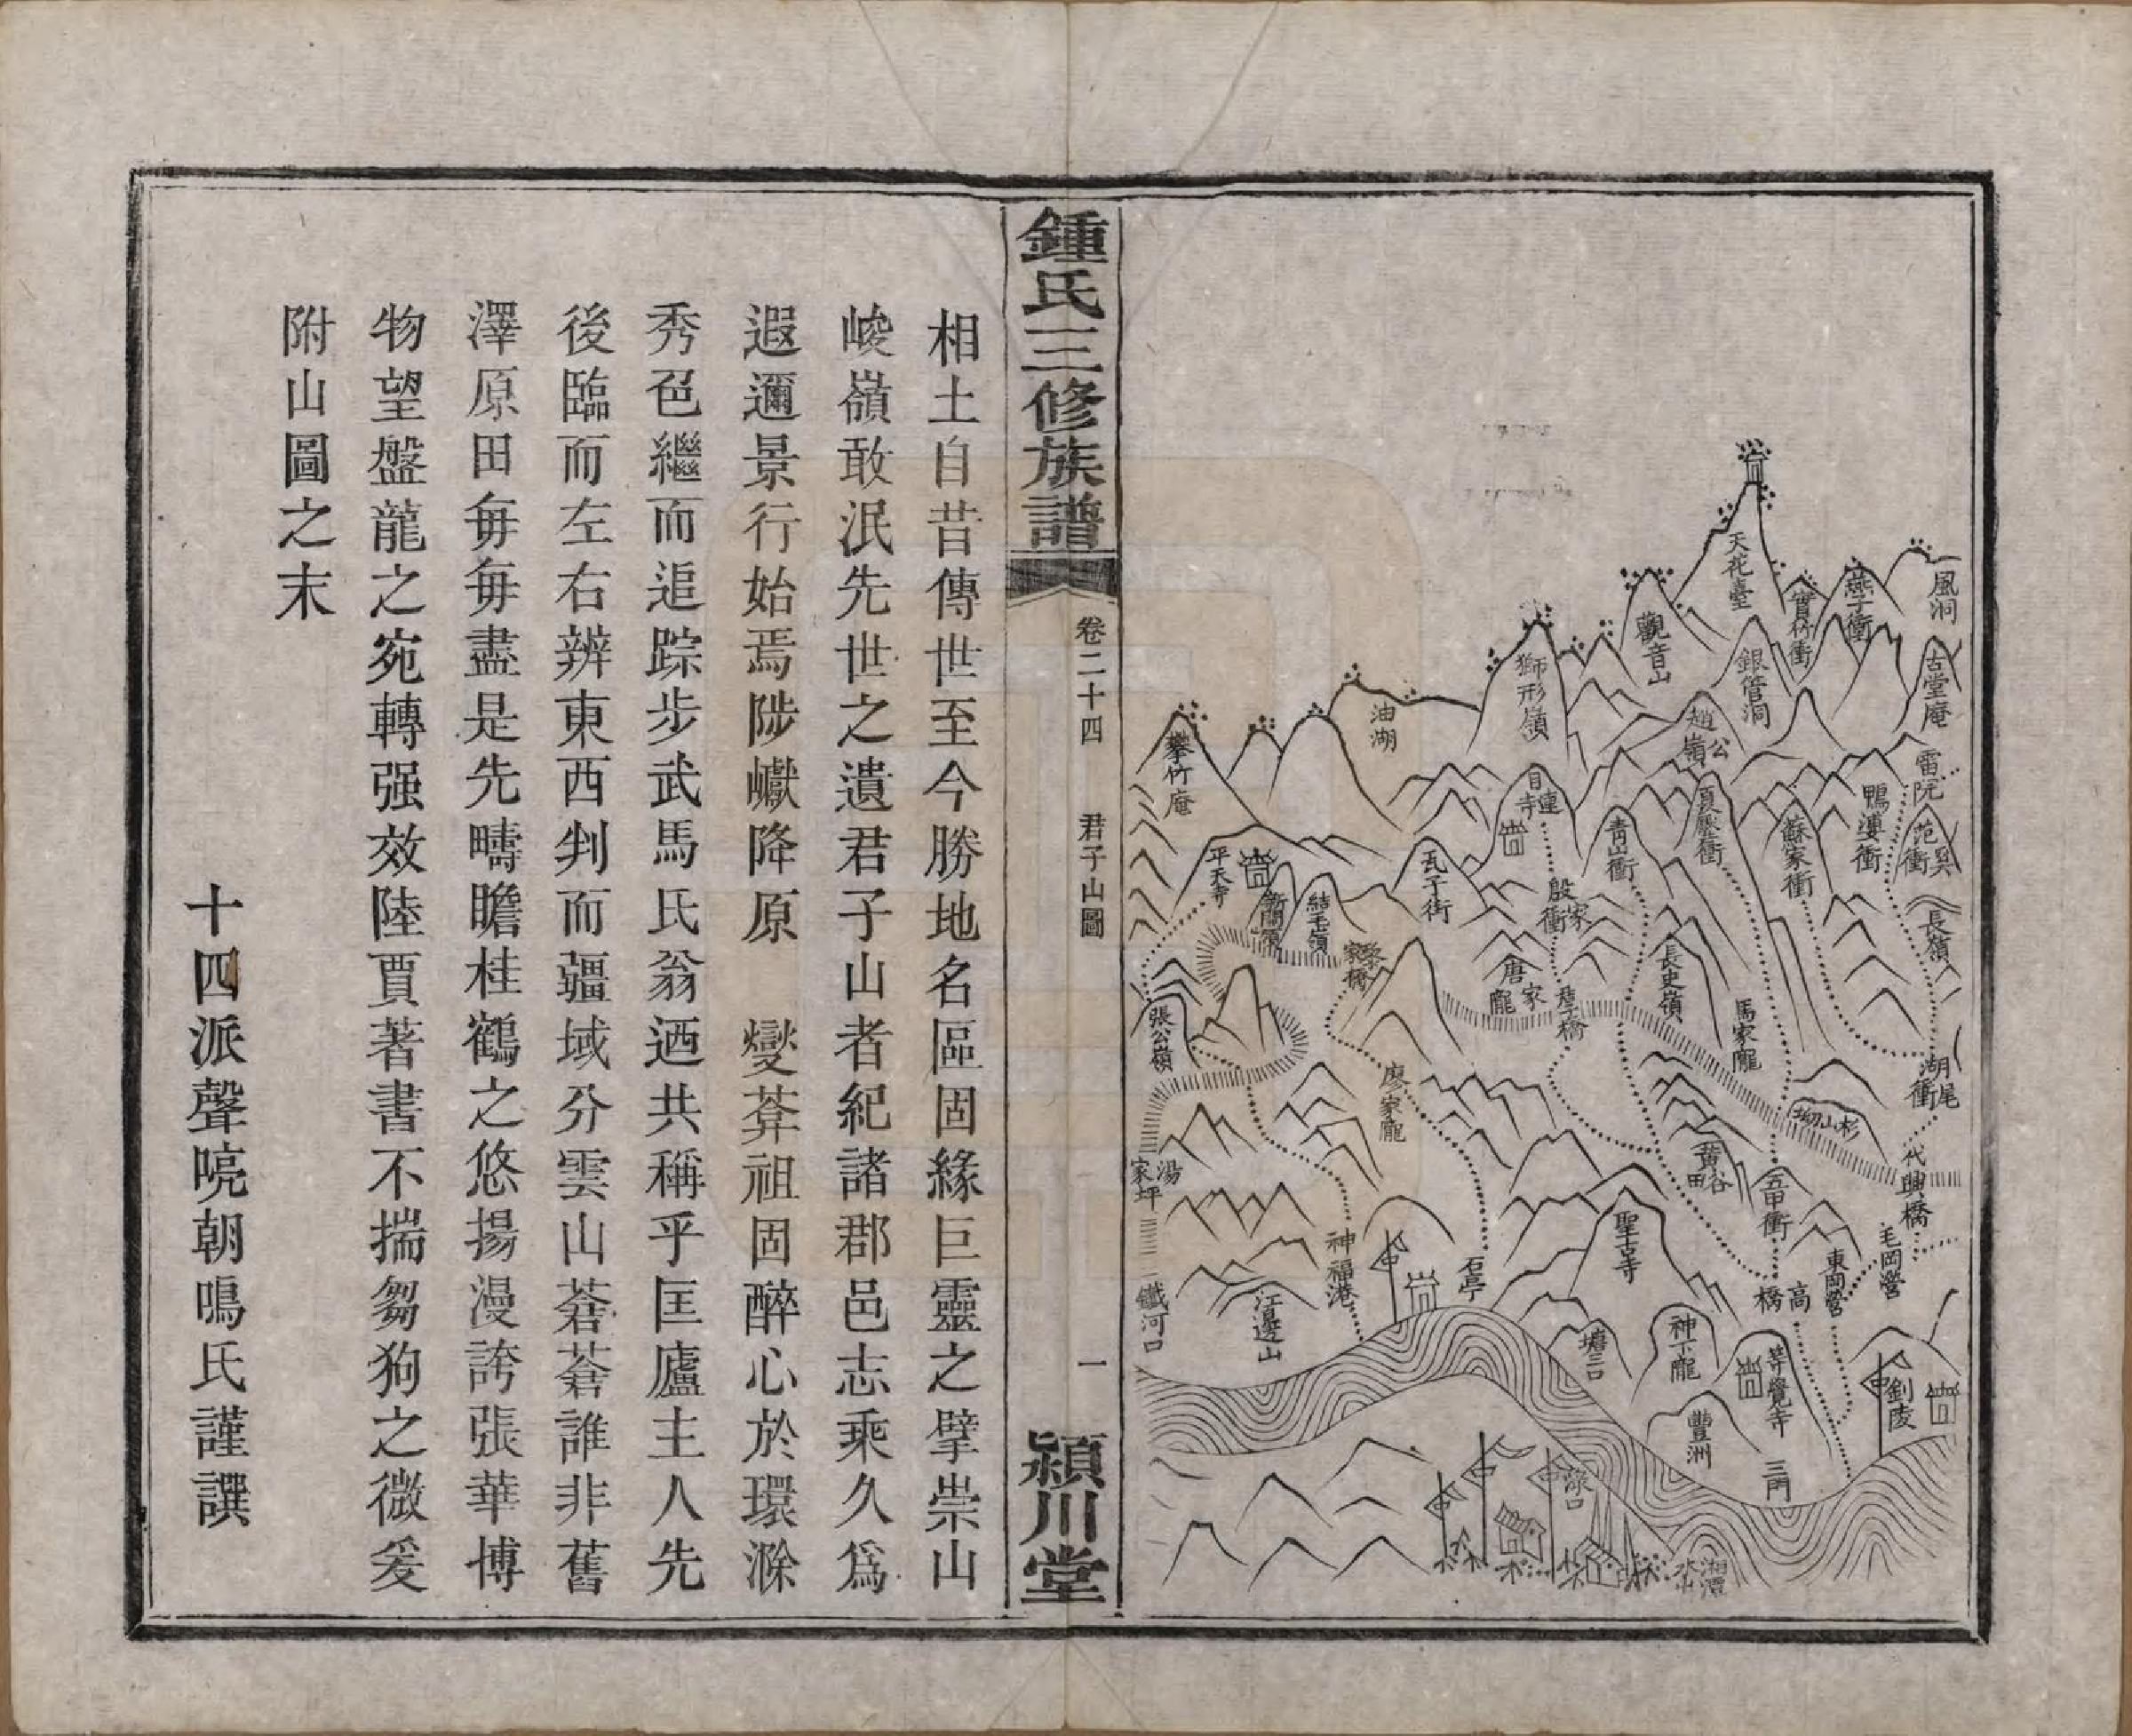 風洞
燕子衝
寶竹衝
天花臺
觀音山
獅形嶺
油湖
攀竹庵
古堂庵
銀管洞
趙公嶺
雷阬
鴨婆衝
范吳衝
蘇家衝
夏㙮衝
青山衝
目連寺
殷家衝
瓦子街
結毛嶺
平天寺
長嶺
長史嶺
馬家龐
唐家龐
黎家橋
張公嶺
湖尾衝
杉山坳
廖家龐
湯家坪
代興橋
黄谷田
五甲衝
聖古寺
毛岡營
東岡營
高橋
石亭
神福港
江邊山
鐵河口
塘三口
神下龐
等覺寺
釗陵
豐洲
三門
淥口
湘潭
鍾氏三修族譜
卷二十四　君子山圖
一
潁川堂
相土自昔傳世至今勝地名區固緣巨靈之擘崇山
峻嶺敢泯先世之遺君子山者紀諸郡邑志乘久爲
遐邇景行始焉陟巘降原　燮葬祖固醉心於環滁
秀色繼而追踪步武馬氏翁迺共稱乎匡廬主人先
後臨而左右辨東西判而疆域分雲山蒼蒼誰非舊
澤原田每每盡是先疇瞻桂鶴之悠揚漫誇張華博
物望盤龍之宛轉强效陸賈著書不揣芻狗之微爰
附山圖之末
十四派聲喨朝鳴氏謹譔